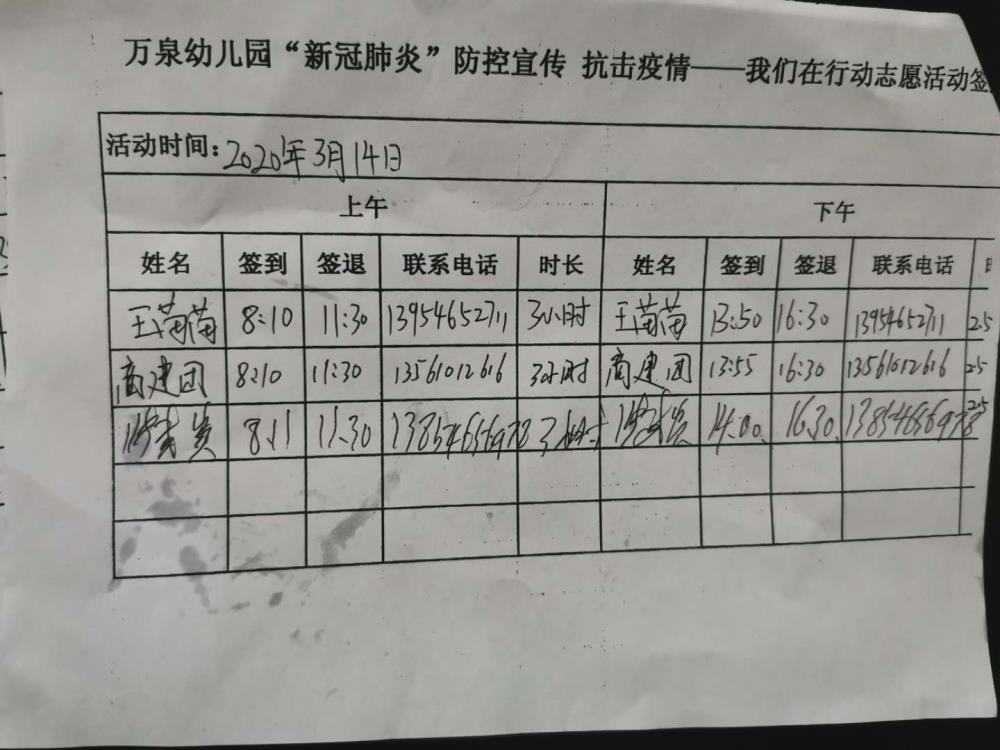 万泉幼儿园“新冠肺炎”防控宣传 抗击疫情——我们在行动志愿活动签
活动时间:2020年3月14日
上午 下午
姓名 签到 签退 联系电话 时长 姓名 签到 签退 联系电话
王苗苗 8:10 11:30 13954652711 3小时 王苗苗 13:50 16:30 13954652711 2.5
商建团 8:10 11:30 13561012616 3小时 商建团 13:55 16:30 13561012616 2.5
8.11 11.30 13854656978 3小时 14.00 16.30 13854656978 2.5